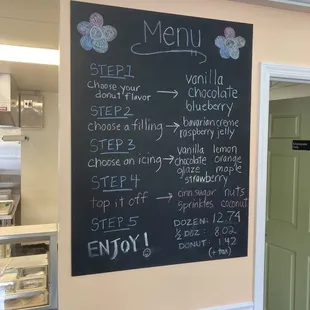 Menu
STEP 1
Choose your
donut flavor →
vanilla
chocolate
blueberry
STEP 2
choose a filling →
Bavarian creme
raspberry jelly
STEP 3
choose an icing →
vanilla lemon
chocolate orange
glaze maple
strawberry
STEP 4
top it off →
cinn sugar nuts
Sprinkles coconut
STEP 5
ENJOY!
DOZEN: 12.74
½ DOZ: 8.02
DONUT: 1.42
(+ tax)